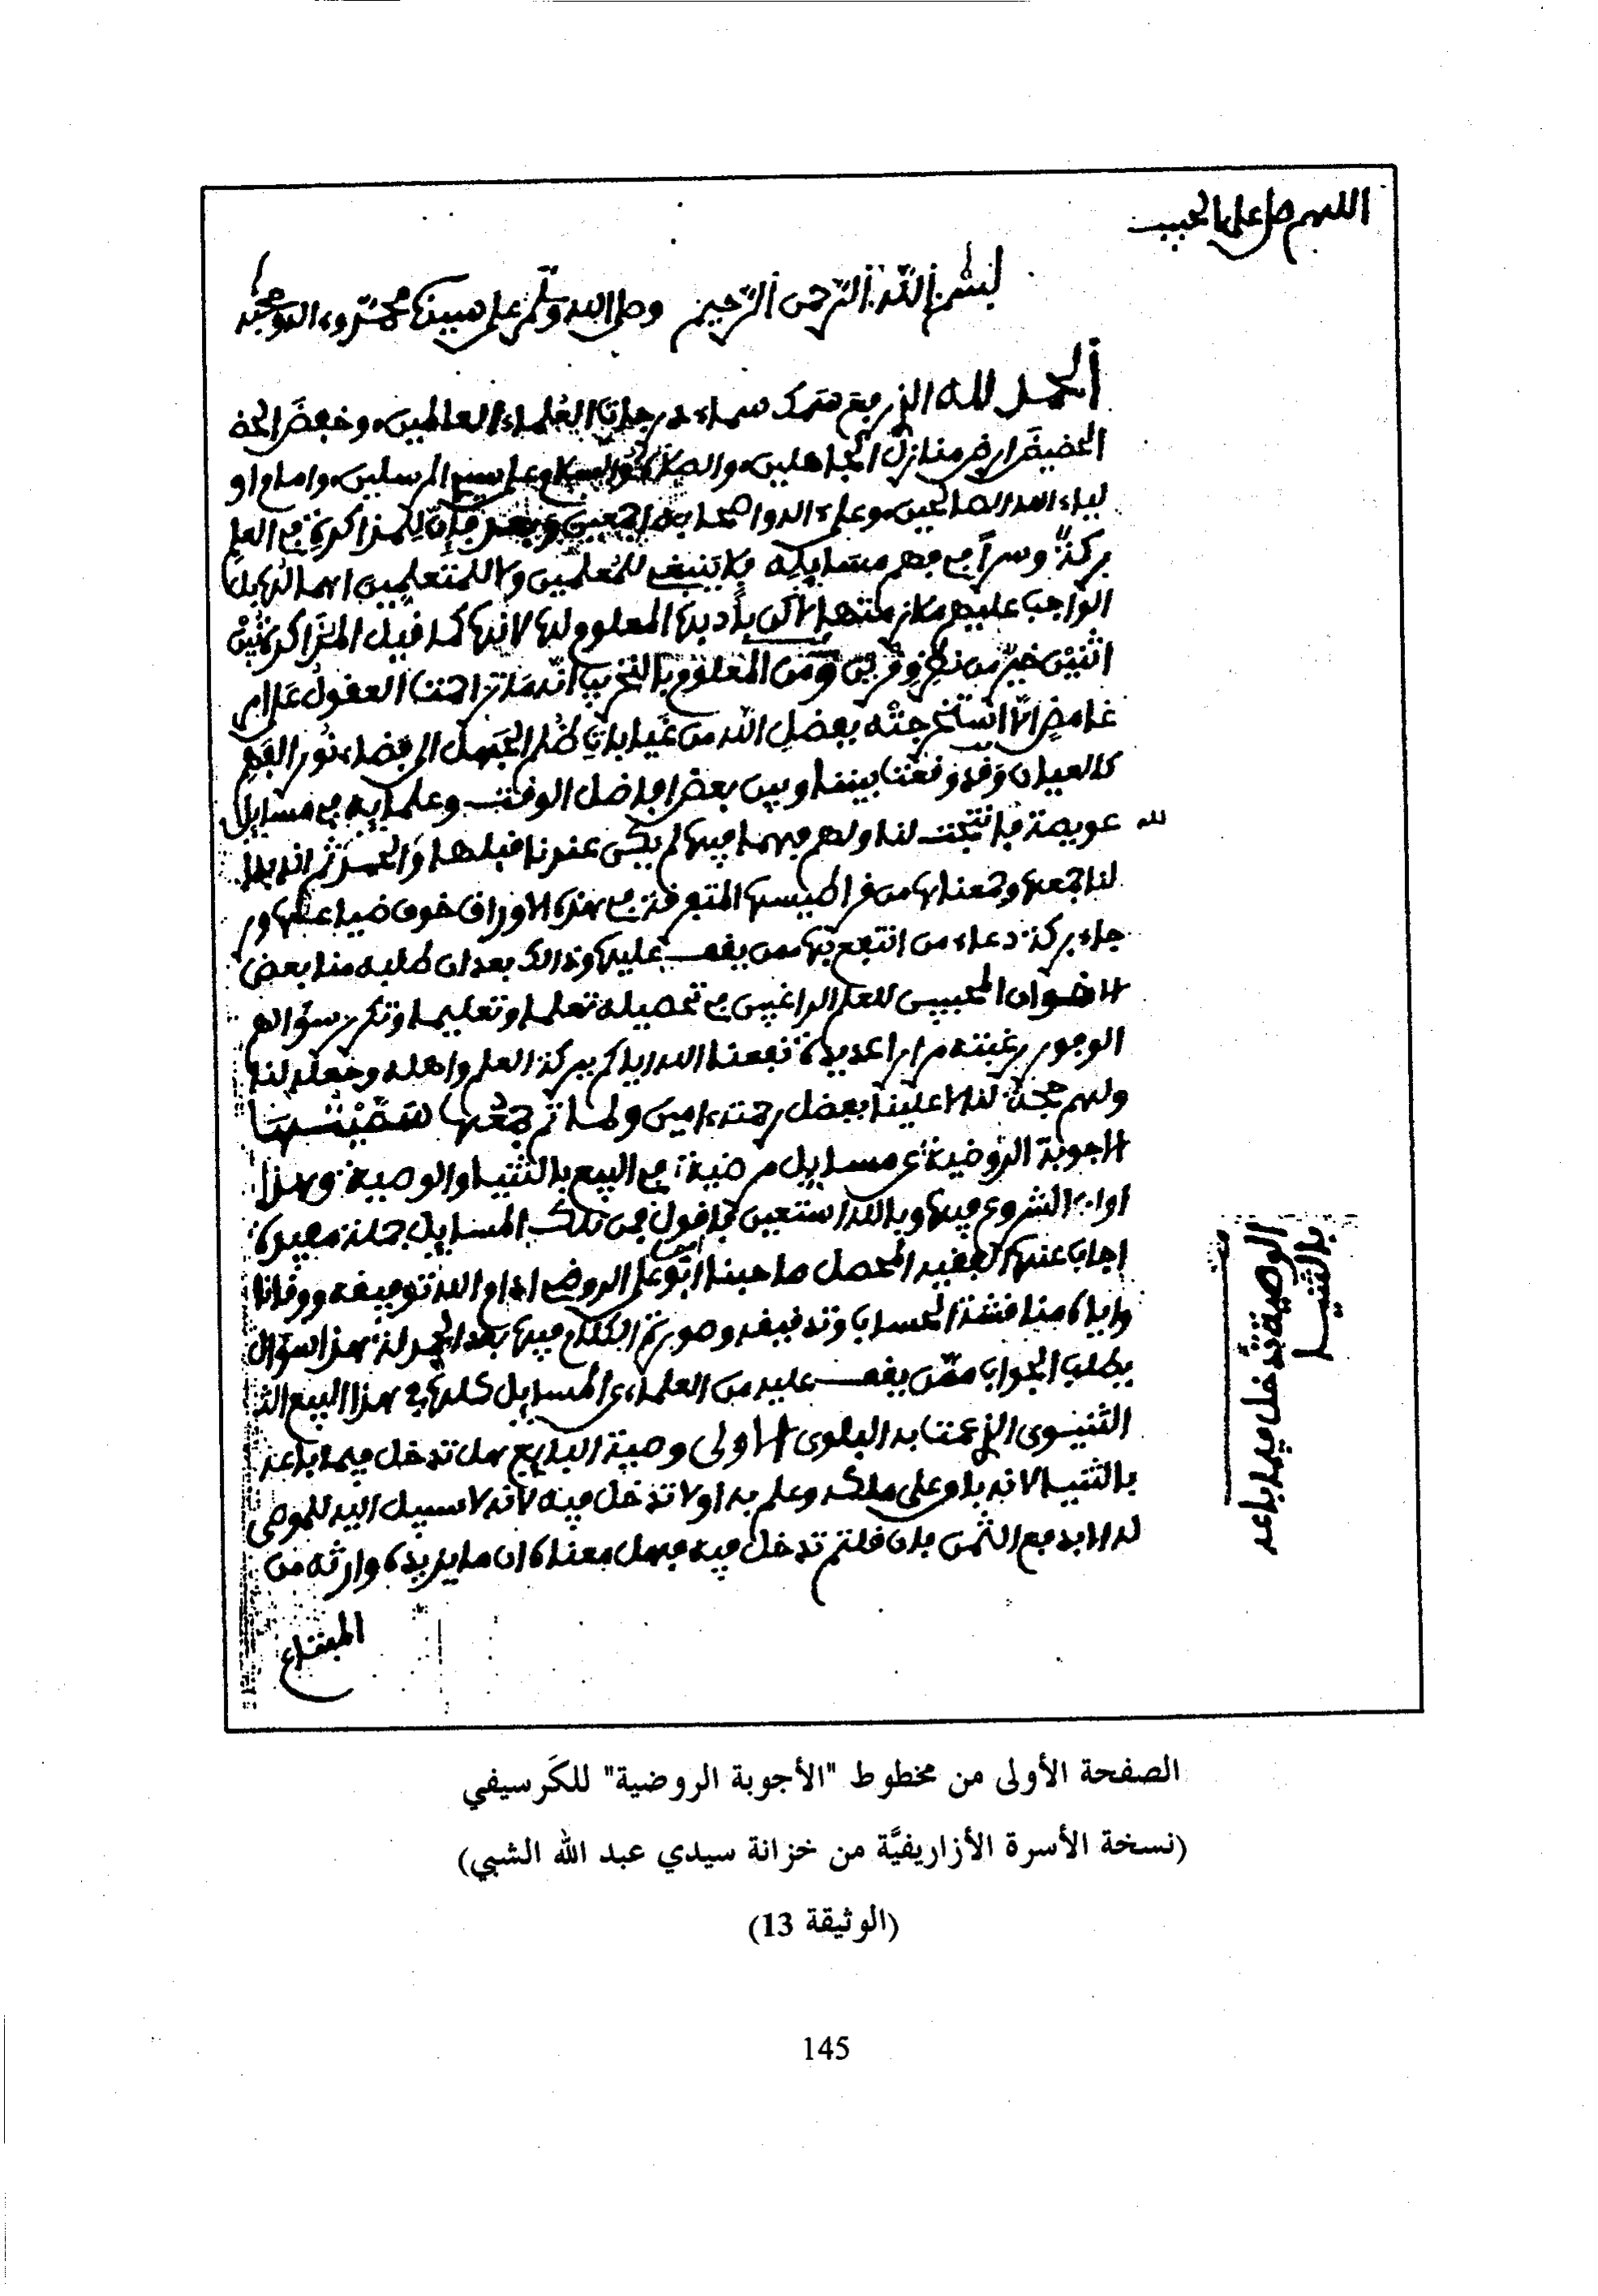 اللهم صل على الحبيب
بسم الله الرحمن الرحيم وصلى الله وسلم على سيدنا محمد وءاله وصحبه
الحمد لله الذي رفع سمك سماء درجات العلماء العالمين وخفض الحض
الحضيض ارض منازل الجاهلين والصلاة والسلام على سيد المرسلين وامام او
لياء الله الصالحين وعلى ءاله واصحابه اجمعين وبعد فإن للمذاكرة في العلم
بركة وسرا في فهم مسايله فلا ينبغي للمعلمين ولا للمتعلمين اهمالها بل
الواجب عليهم ملازمتها لاكن بأدبها المعلوم لها لانها كما قيل المذاكرة بين
اثنين خير من وقرين ومن المعلوم بالتجريب انه ما تزاحمت العقول على امر
غامض الا استخرجته بفضل الله من غيابات ظلم الجهل الى فضاء نور الفهم
كالعيان وقد وقعت بيننا وبين بعض افاضل الوقت وعلمايه في مسايل
عويصة فانتجت لنا ولهم فهما فيها لم يكن عندنا قبلها والحمد لله ثم انه بدا
لنا جمعها وجمعناها من قراطيسها المتفرقة في هذه الاوراق خوف ضياعها ور
جاء بركة دعاء من انتفع بها ممن يقف عليها وذالك بعد ان طلبه منا بعض
الاخوان المحبين للعلم الراغبين في تحصيله تعلما وتعليما وتكرر سؤالهم
رغبته مرارا عديدة نفعنا الله واياكم ببركة العلم واهله وجعله لنا
ولهم حجة لنا لا علينا بفضل رحمته ءامين ولما تم جمعها سميتها
الاجوبة الروضية عن مسايل مرضية في البيع بالثنيا والوصية وهذا
اوان الشروع فيها وبالله استعين فاقول فمن تلك المسايل جملة مفيدة
اجاب عنها الفقيه المحصل صاحبنا ابو علي الروضي ادام الله توفيقه ووقانا
واياه مناقشة الحساب وتدقيقه ءامين وصورة الكلام فيها بعد الحمدلة هذا سؤال
يطلب الجواب ممن يقف عليه من العلماء عن المسايل كلها في هذا البيع الث
الثنيوي الذي عمت به البلوى الاولى وصية البايع هل تدخل فيما باعه
بالثنيا لانه باق على ملكه وعلم به او لا تدخل فيه لانه لا سبيل اليه للموصى
له الا بدفع الثمن فان قلتم تدخل فيه فهل معناه ان ما يزيده وارثه من
المبتاع
الوصية تدخل فيما باعه
بالثنيا
الصفحة الأولى من مخطوط "الأجوبة الروضية" للكَرسيفي
(نسخة الأسرة الأزاريفيَّة من خزانة سيدي عبد الله الشبي)
(الوثيقة 13)
145